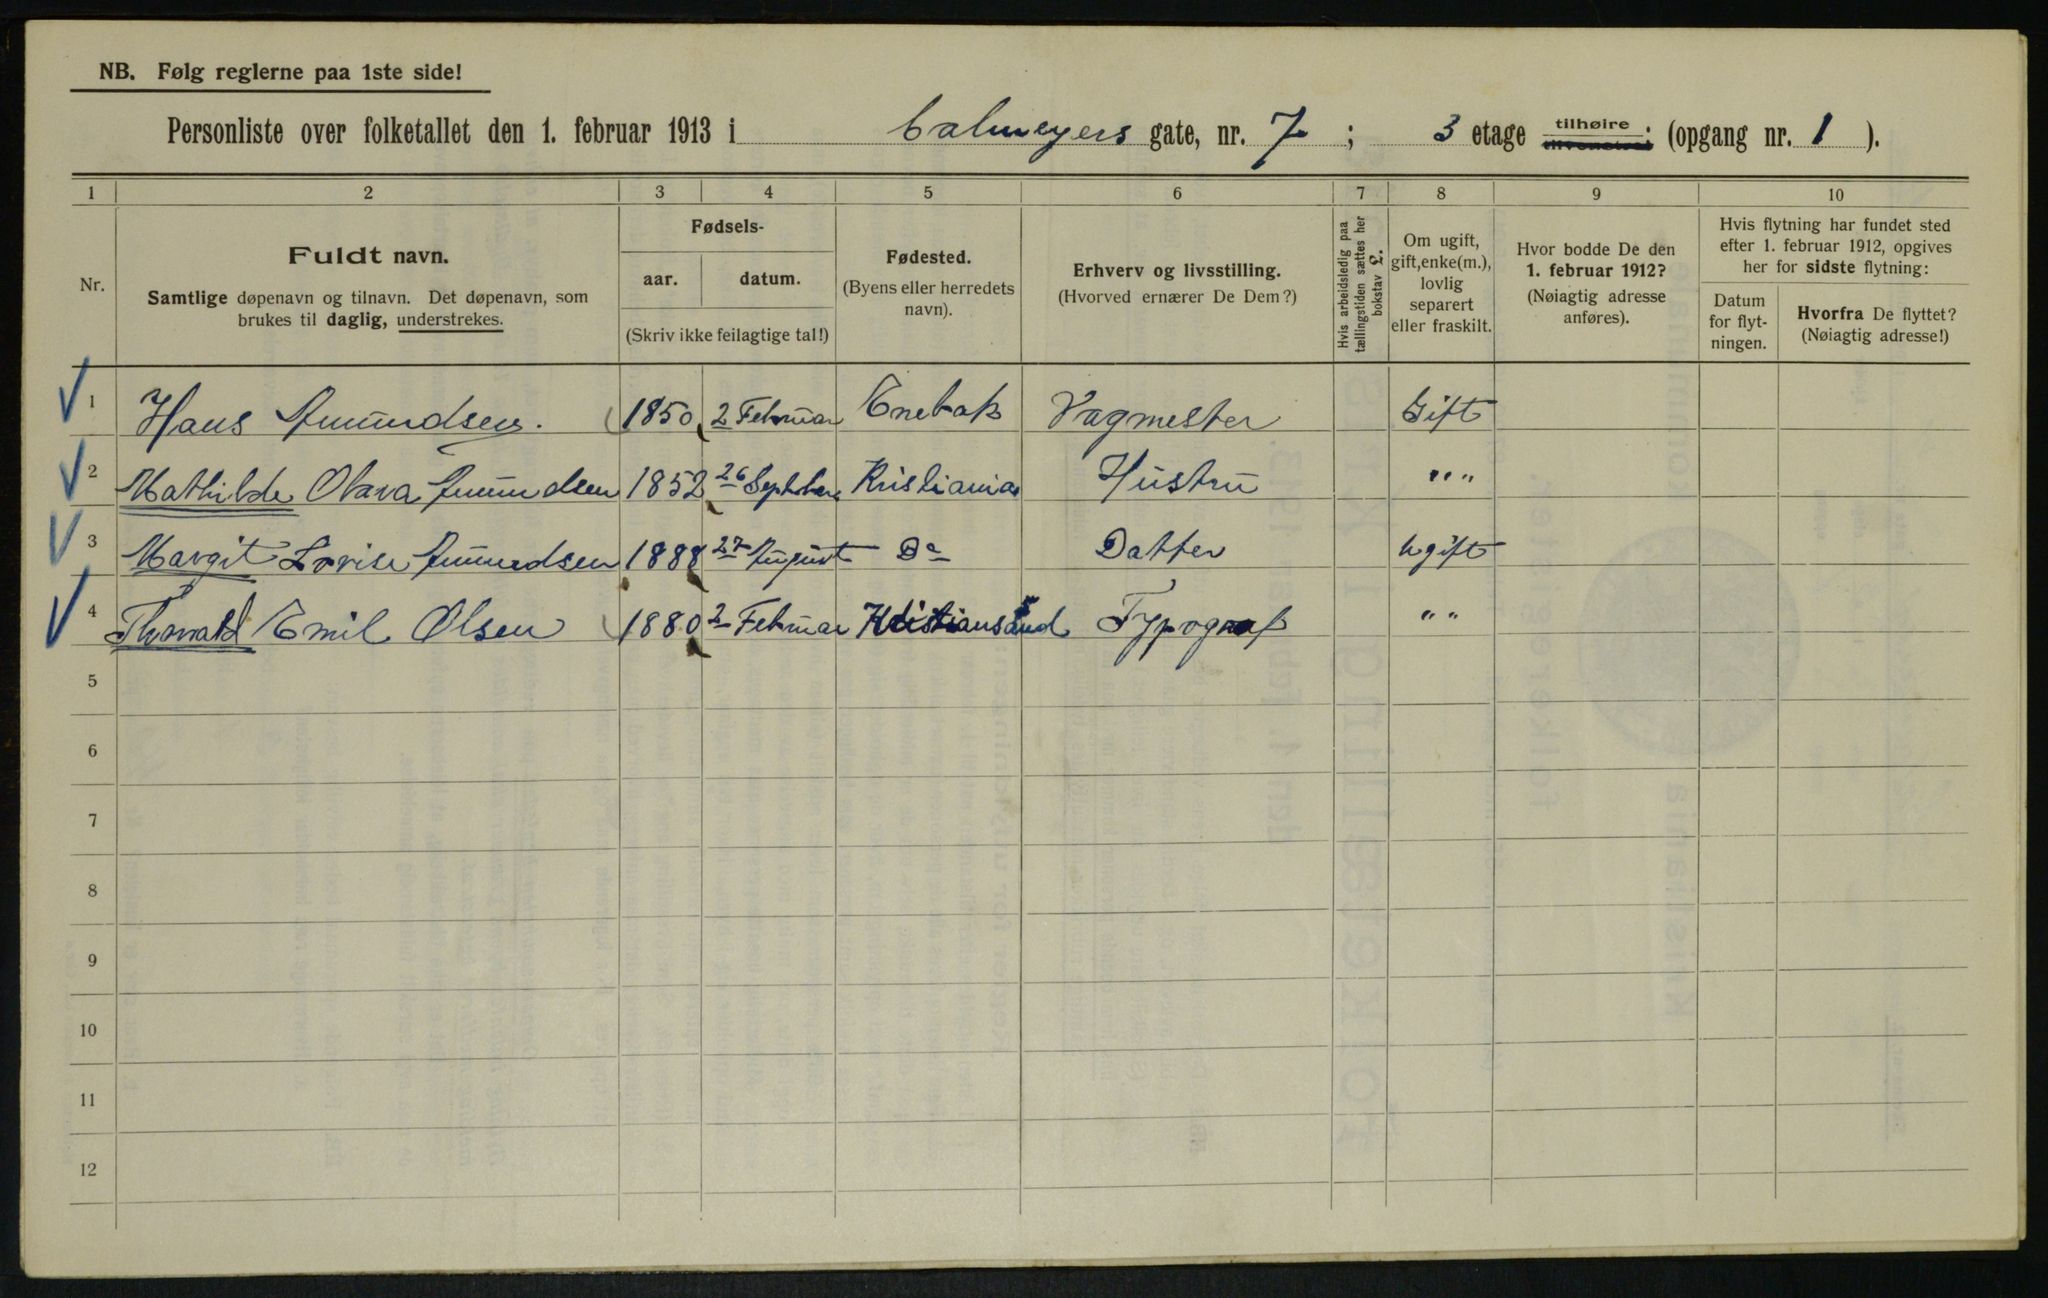 NB. Følg reglerne paa 1ste side!
Personliste over folketallet den 1. februar 1913 i Calmeyers gate, nr. 7 ; 3 etage tilhøire (opgang nr. 1 ).
1 2 3 4 5 6 7 8 9 10
Nr.
Fuldt navn.
Samtlige døpenavn og tilnavn. Det døpenavn, som
brukes til daglig, understrekes.
Fødsels-
aar. datum.
(Skriv ikke feilagtige tal!)
Fødested.
(Byens eller herredets
navn).
Erhverv og livsstilling.
(Hvorved ernærer De Dem?)
Hvis arbeidsledig paa
tællingstiden sættes her
bokstav £.
Om ugift,
gift, enke(m.),
lovlig
separert
eller fraskilt.
Hvor bodde De den
1. februar 1912?
(Nøiagtig adresse
anføres).
Hvis flytning har fundet sted
efter 1. februar 1912, opgives
her for sidste flytning:
Datum
for flyt-
ningen.
Hvorfra De flyttet?
(Nøiagtig adresse!)
1 Hans Amundsen. 1850 2 Februar Enebak Vagmester Gift
2 Mathilde Olava Amundsen 1852 26 September Kristiania Hustru " "
3 Margit Lovise Amundsen 1888 27 August Do Datter Ugift
4 Thorvald Emil Olsen 1880 2 Februar Kristianssund Typograf " "
5
6
7
8
9
10
11
12